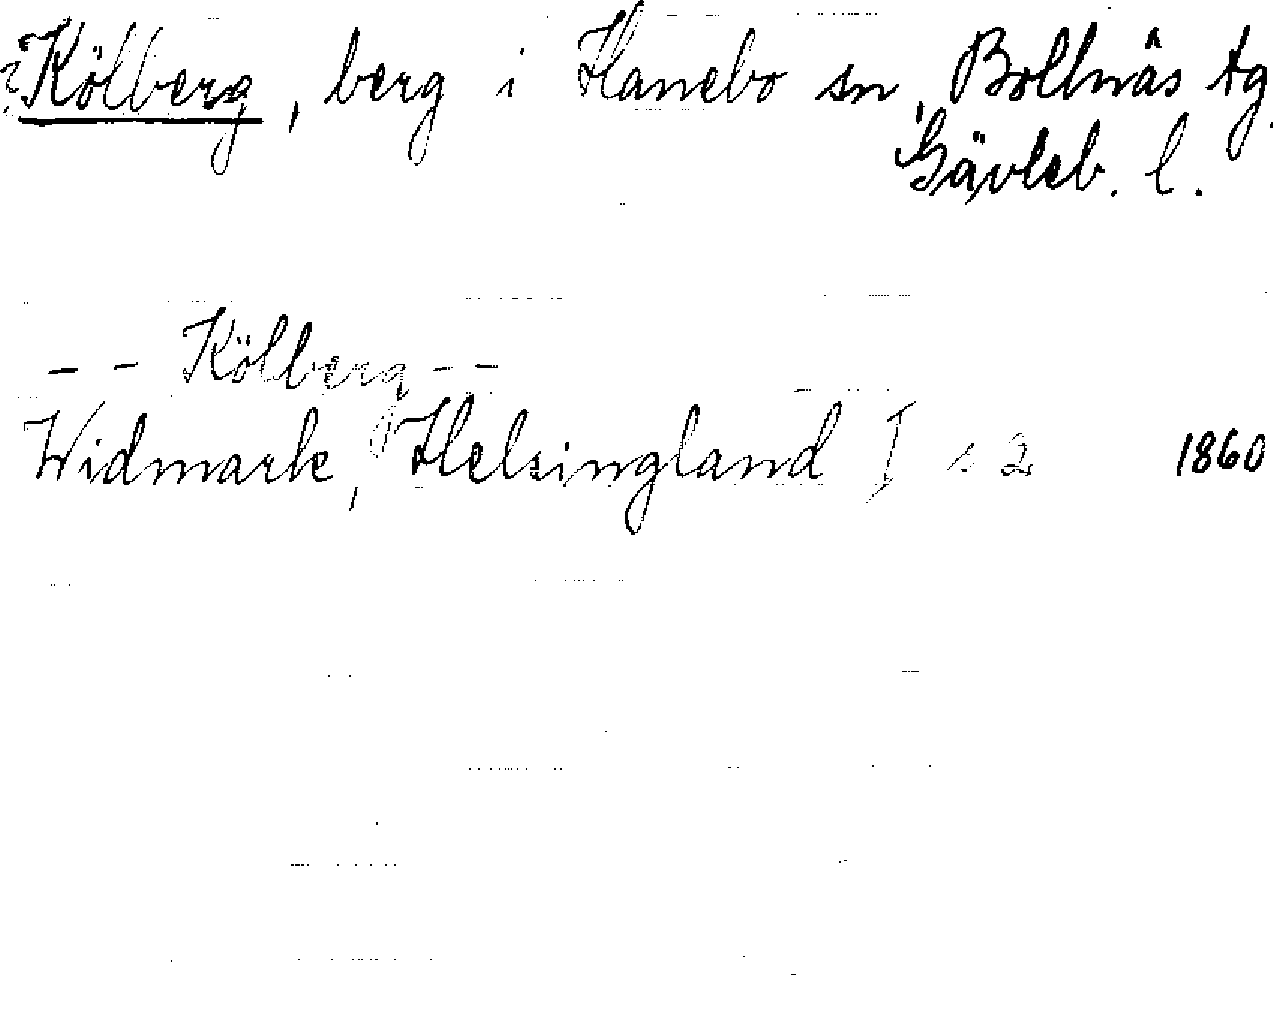 ?Kölberg, berg i Hanebo sn, Bollnäs tg.
Gävleb. l.
-- Kölberg --
Widmark, Helsingland I s 2 1860